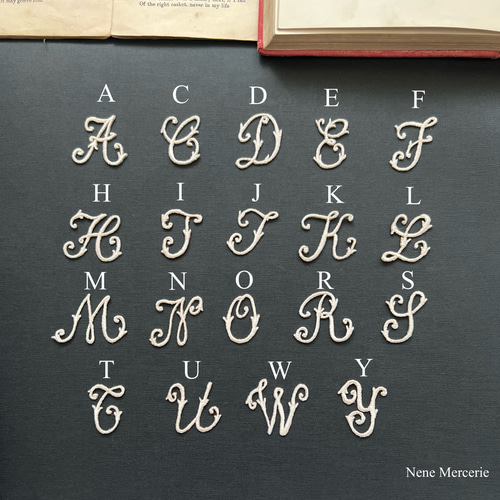 Of the right casket, never in my life
A C D E F
A C D E F
H I J K L
H I J K L
M N O R S
M N O R S
T U W Y
T U W Y
Nene Mercerie